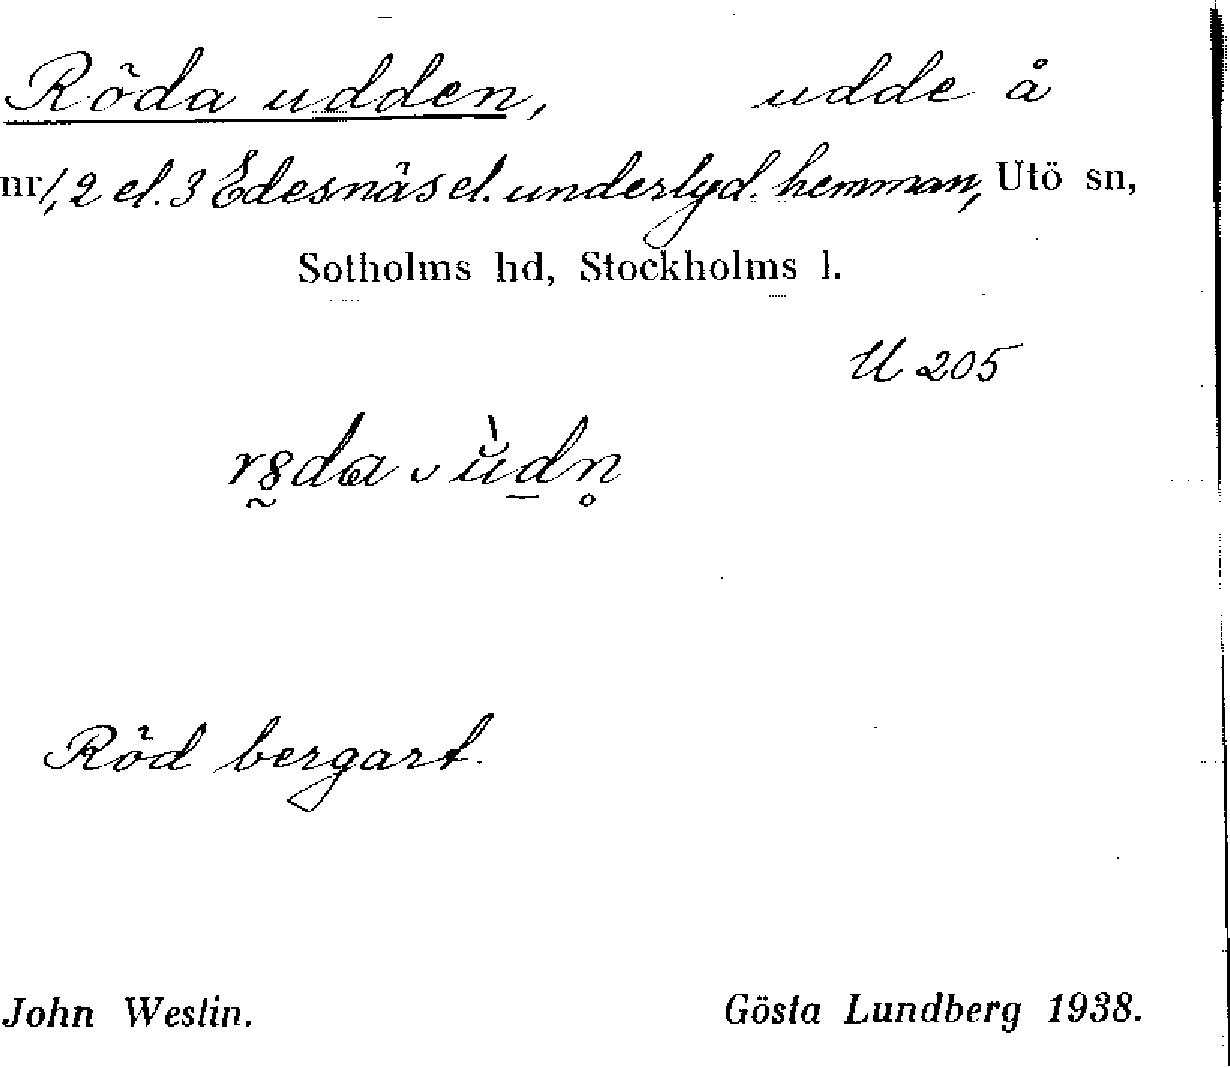 Röda udden, udde å
nr 1, 2 el. 3 Edesnäs el. underlyd. hemman, Utö sn,
Sotholms hd, Stockholms l.
U 205
Röd bergart.
John Westin. Gösta Lundberg 1938.